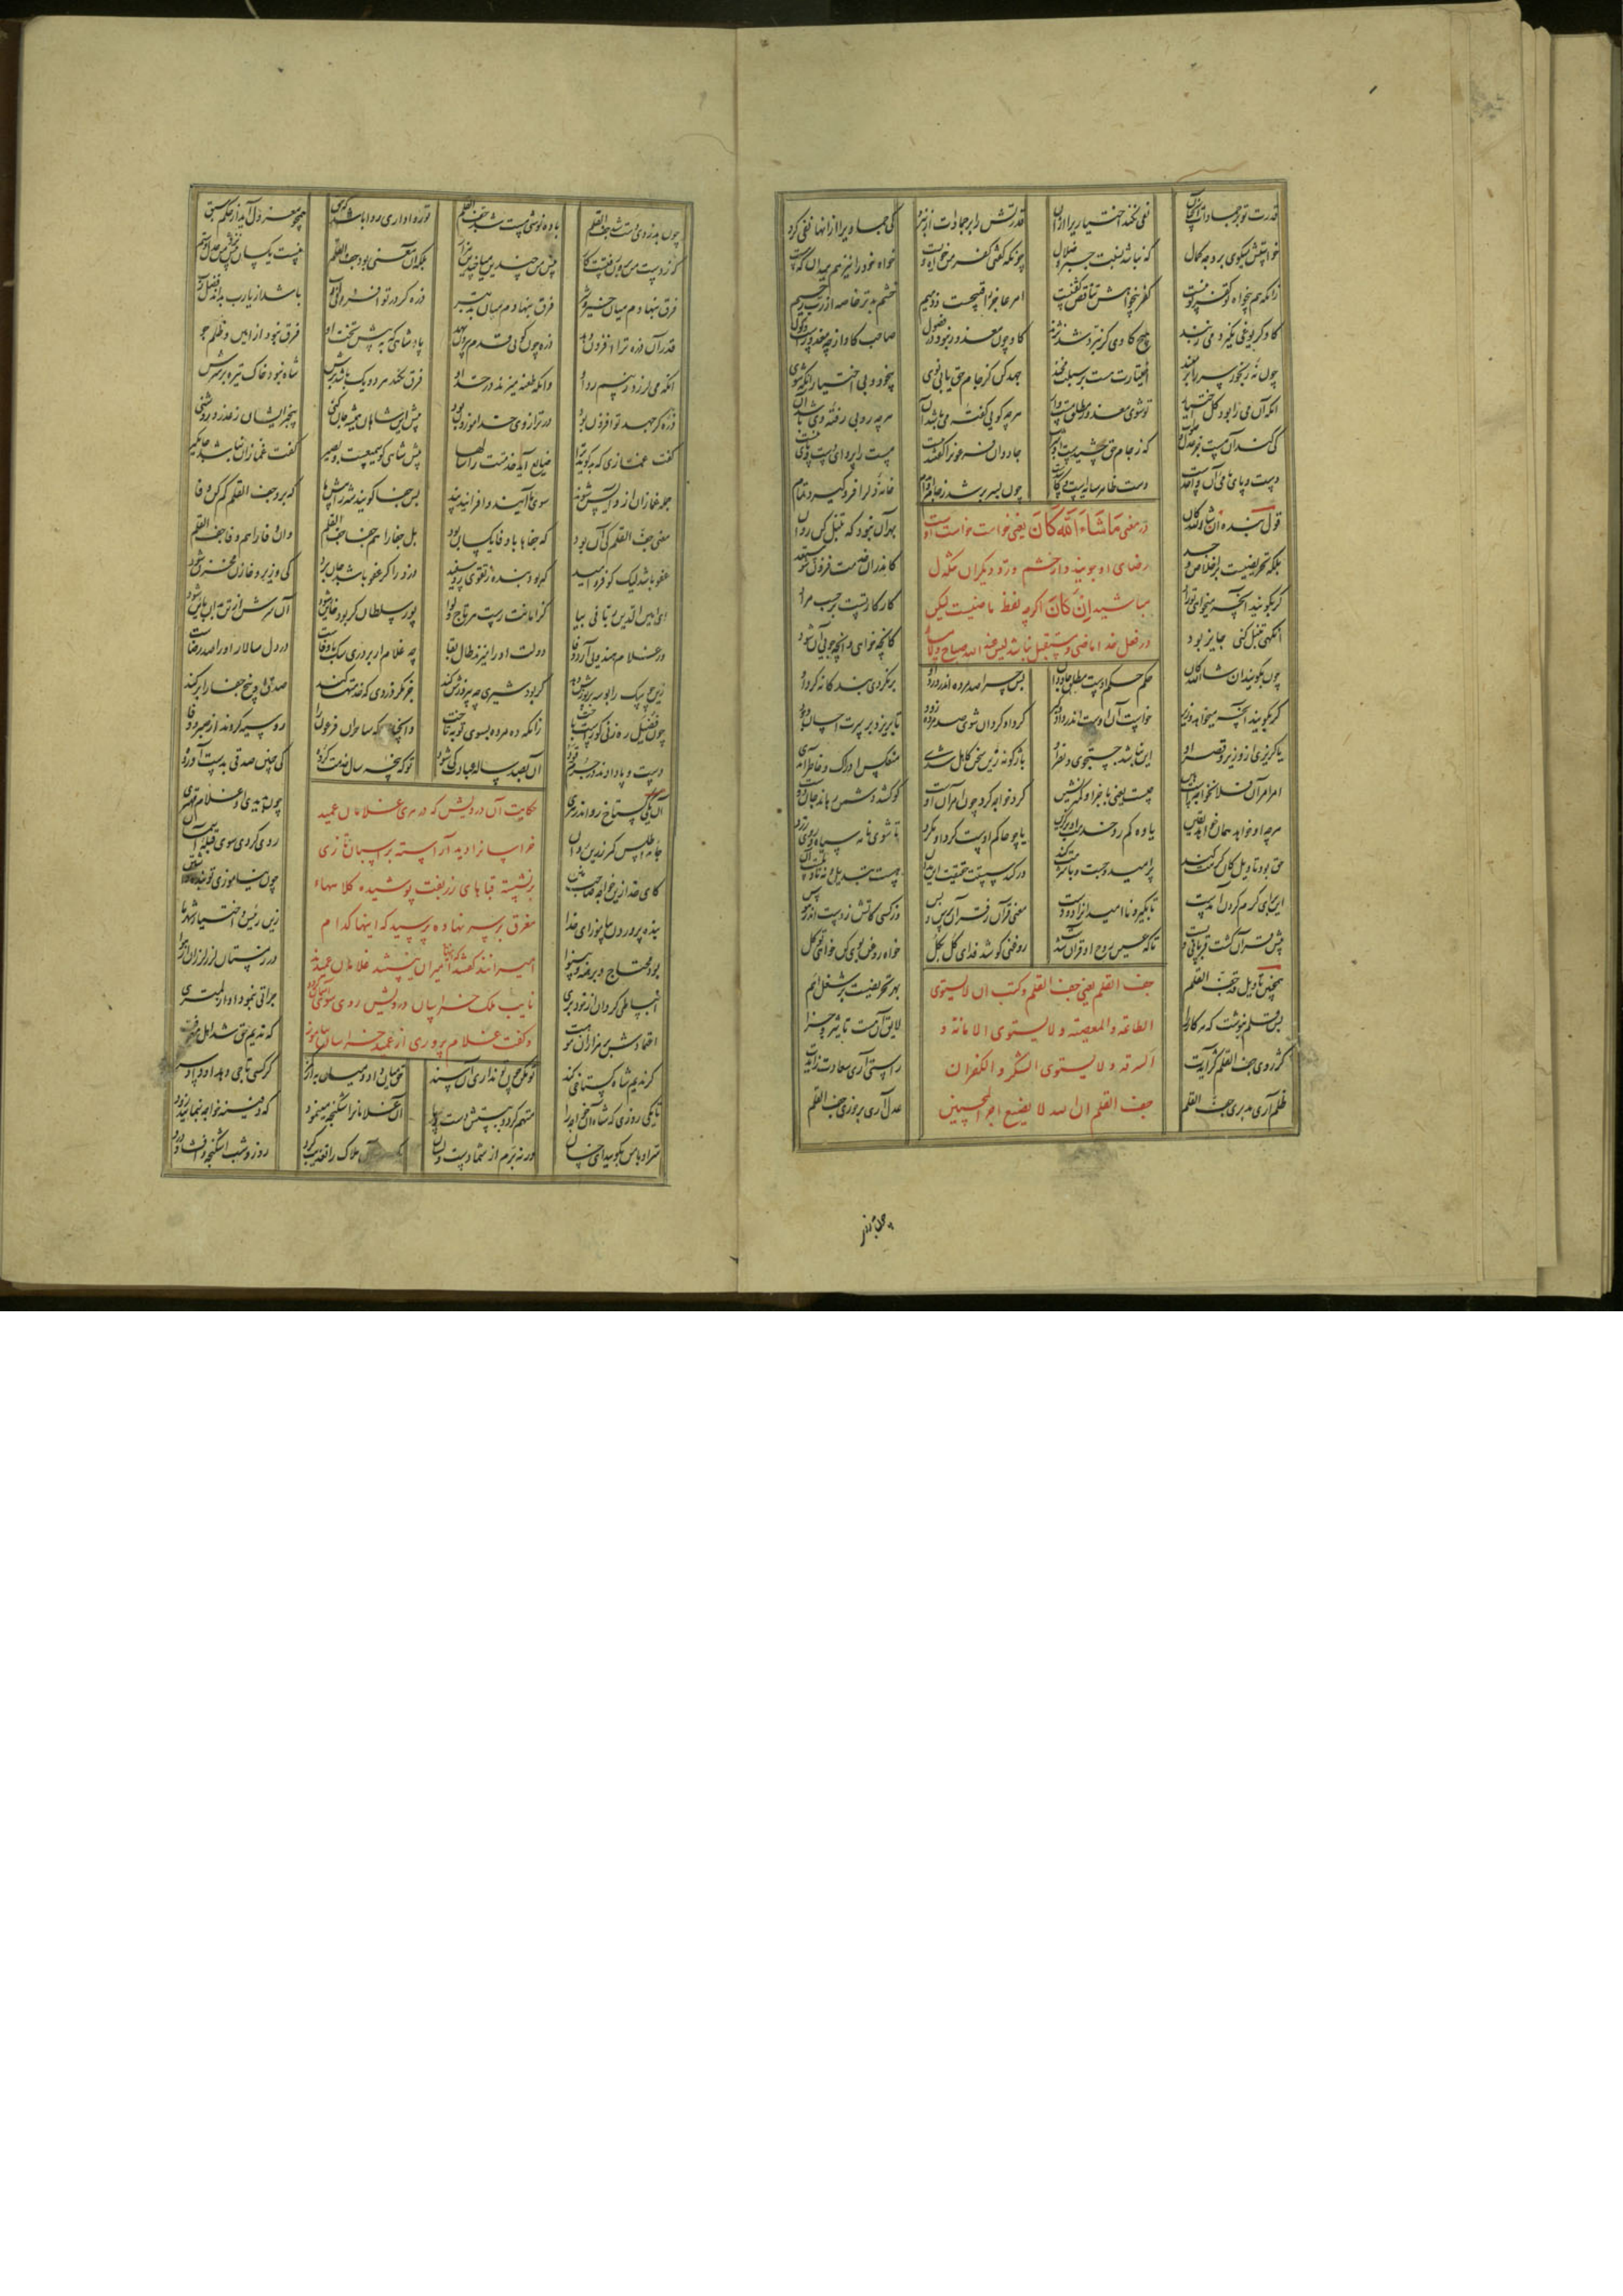 قدرت تو بر جمادات آنچنان نفی نکند اختیاری را از آن قدرتش را بر جمادات از نبرد کی جمادی را از آنها نفی کرد
خواستش میکوی بر وجه کمال که نباشد نسبت جبر و ضلال چونکه کفتی کفر من خواست ویست خواه خود را نیز هم میدان که هست
زانکه بیخواه تو کفر تو نیست کفر بیخواهش تناقض کفتنیست امر عاجز را قبیحست و ذمیم خشم بدتر خاصه از رب رحیم
کاو کر یوغی نکیرد می زنند هیچ کاوی کر نپرد شد نژند کاو چون معذور نبود در فضول صاحب کاو از چه معذورست و دول
چون نه رنجور سر را بر مبند اختیارت هست بر سبلت مخند جهد کن کز جام حق یابی نوی بیخود و بی اختیار آنکه شوی
آنکه آن می را بود کل اختیار تو شوی معذور مطلق مست وار هر چه کویی کفته می باشد آن هر چه روبی رفته می باشد آن
کی کند آن مست جز عدل و صواب که ز جام حق چشیدست او شراب جادوان فرعون را کفتند بیست مست را پروای دست و پای نیست
دست و پای ما می آن واحدست دست ظاهر سایه است و کاسدست چون بسر بر شد ز جام او مدام خانه دل را فرو کیرد تمام
در معنی مَا شَاءَ اللّه کَانَ یعنی خواست خواست او
رضای او جویند و از خشم و رد دیکران متکدل
مباشید اِن کَانَ اکر چه لفظ ماضیست لیکن
در فعل خدا ماضی و مستقبل نباشد لیس عند الله صباح ولا مساء
قول بنده ان شاء الله کان بهر آن نبود که تنبل کن در آن
بلکه تحریضست بر اخلاص و جد کاندر آن خدمت فزون شو مستعد
کر بکویند آنچه میخواهی تو راد کار کار تست بر حسب مراد
آنکهی تنبل کنی جایز بود کانچه خواهی و آنچه جویی آن شود
چون بکویند ان شاء الله کان حکم حکم اوست مطلق جاودان پس چرا صد مرده اندر ورد او بر نکردی بندکانه کرد او
کر بکویند آنچه میخواهد وزیر خواست آن اوست اندر دار و کیر کرد او کردان شوی صد مرده زود تا بریزد بر سرت احسان و جود
یا کریزی از وزیر و قصر او این نباشد جست جوی و نصر او باژکونه زین سخن کاهل شدی منعکس ادراک و خاطر آمدی
امر امر آن فلان خواجه است هین چیست یعنی با جز او کمتر نشین کرد خواجه کرد چون امر آن اوست کو کشد دشمن رهاند جان دوست
هر چه او خواهد همان خواهد یقین یاوه کم رو خدمت او برکزین یا چو حاکم اوست کرد او مکرد تا شوی نامه سیاه و روی زرد
حق بود تاویل کان کرمت کند پر امید و چست و با شرمت کند ور کند سستت حقیقت این بدان هست تبدیل و نه تاویلست آن
این برای کرم کردن آمدست تا بکیرد ناامیدانرا دو دست معنی قرآن ز قرآن پرس و بس وز کسی کاتش زدست اندر هوس
پیش قرآن کشت قربانی و پست تا که عین روح او قرآن شدست روغنی کو شد فدای کل بکل خواه روغن بوی کن خواهی تو کل
جف القلم یعنی جف القلم و کتب ان لا یستوی
الطاعة والمعصیة و لا یستوی الامانة و
السرقة و لا یستوی الشکر و الکفران
جف القلم ان الله لا یضیع اجر المحسنین
همچنین تاویل قد جف القلم بهر تحریضست بر شغل اهم
پس قلم بنوشت که هر کار را لایق آن هست تاثیر و جزا
کژ روی جف القلم کژ آیدت راستی آری سعادت زایدت
ظلم آری مدبری جف القلم عدل آری بر خوری جف القلم
چون بدزدد
چون بدزدد دست شد جف القلم باده نوشد مست شد جف القلم تو روا داری روا باشد که حق همچو معزول آید از حکم سبق
که ز دست من برون رفتست کار پیش من چندین میا چندین مزار بلکه آن معنی بود جف القلم نیست یکسان پیش من عدل و ستم
فرق بنهادم میان خیر و شر فرق بنهادم میان بد بتر ذره کر در تو افزونی ادب باشد از یارت بداند فضل رب
قدر آن ذره ترا افزون دهد ذره چون کوهی قدم بیرون نهد پادشاهی که به پیش تخت او فرق نبود از امین و ظلم جو
آنکه می لرزد ز بیم رد او وانکه طعنه میزند در جد او فرق نکند هر دو یک باشد برش شاه نبود خاک تیره بر سرش
ذره کر جهد تو افزون بود در ترازوی خدا موزون بود پیش این شاهان همیشه جان کنی بیخبر ایشان ز غدر و روشنی
کفت غمازی که بد کوید ترا ضایع آرد خدمتت را سالها پیش شاهی کو سمیعست و بصیر کفت غمازان نباشد جای کیر
جمله غمازان ازو آیس شوند سوی ما آیند و افزایند پند بس جفا کویند شه را پیش ما که برو جف القلم کم کن وفا
معنی جف القلم کی آن بود که جفاها با وفا یکسان بود بل جفا را هم جفا جف القلم وان وفا را هم وفا جف القلم
عفو باشد لیک کو فر امید که بود بنده ز تقوی رو سفید دزد را کر عفو باشد جان برد کی وزیر و خازن مخزن شود
ای امین الدین ربانی بیا کز امانت رست هر تاج و لوا پور سلطان کر برو خاین شود آن سرش از تن بدان باین شود
ور غلام هندوی آرد وفا دولت او را میزند طال بقا چه غلام ار بر دری سک باوفاست در دل سالار او را صد رضاست
زین چو سک را بوسه بر پوزش دهد کر بود شیری چه پیروزش کند جز مکر دزدی که خدمتها کند صدق او بیخ جفا را بر کند
چون فضیل ره زنی کو راست باخت زانکه ده مرده بسوی توبه تاخت وانچنان که ساحران فرعون را رو سیه کردند از صبر و وفا
دست و پا دادند در جرم قود آن بصد ساله عبادت کی شود تو که پنجه سال خدمت کرده کی چنین صدقی بدست آورده
حکایت آن درویش که در هری غلامان عمید
خراسانرا دید آراسته بر اسبان تازی
بر نشسته قباهای زربفت پوشیده کلاههاء
مغرق بر سر نهاده پرسید که اینها کدام
امیرانند کفتند که اینها امیران نیستند غلامان عمیدند
نایب ملک خراسان درویش روی سوی آسمان کرد
و کفت غلام پروری از عمید خراسان بیاموز
آن یکی کستاخ رو اندر هری چون بدیدی او غلام مهتری
جامه اطلس کمر زرین روان روی کردی سوی قبله آسمان
کای خدا زین خواجه صاحب منن چون نیاموزی تو بنده داشتن
بنده پروردن بیاموز ای خدا زین رئیس و اختیار شهر ما
بود محتاج و برهنه و بینوا در زمستان لرز لرزان از هوا
انبساطی کرد آن از خود بری جراتی بنمود او از لمتری
اعتمادش بر هزاران موهبت که ندیم حق شد اهل معرفت
کر ندیم شاه کستاخی کند تو مکن چون تو نداری آن سند حق میان داد و میان به از کمر کر کسی تاجی دهد او داد سر
تا یکی روزی که شاه آن خواجه را متهم کرد و ببستش دست و پا آن غلامانرا شکنجه مینمود که دفینه خواجه بنمایید زود
سر او با من بکویید ای خسان ورنه برم از شما دست و لسان روز و شب اشکنجه و افشار و درد